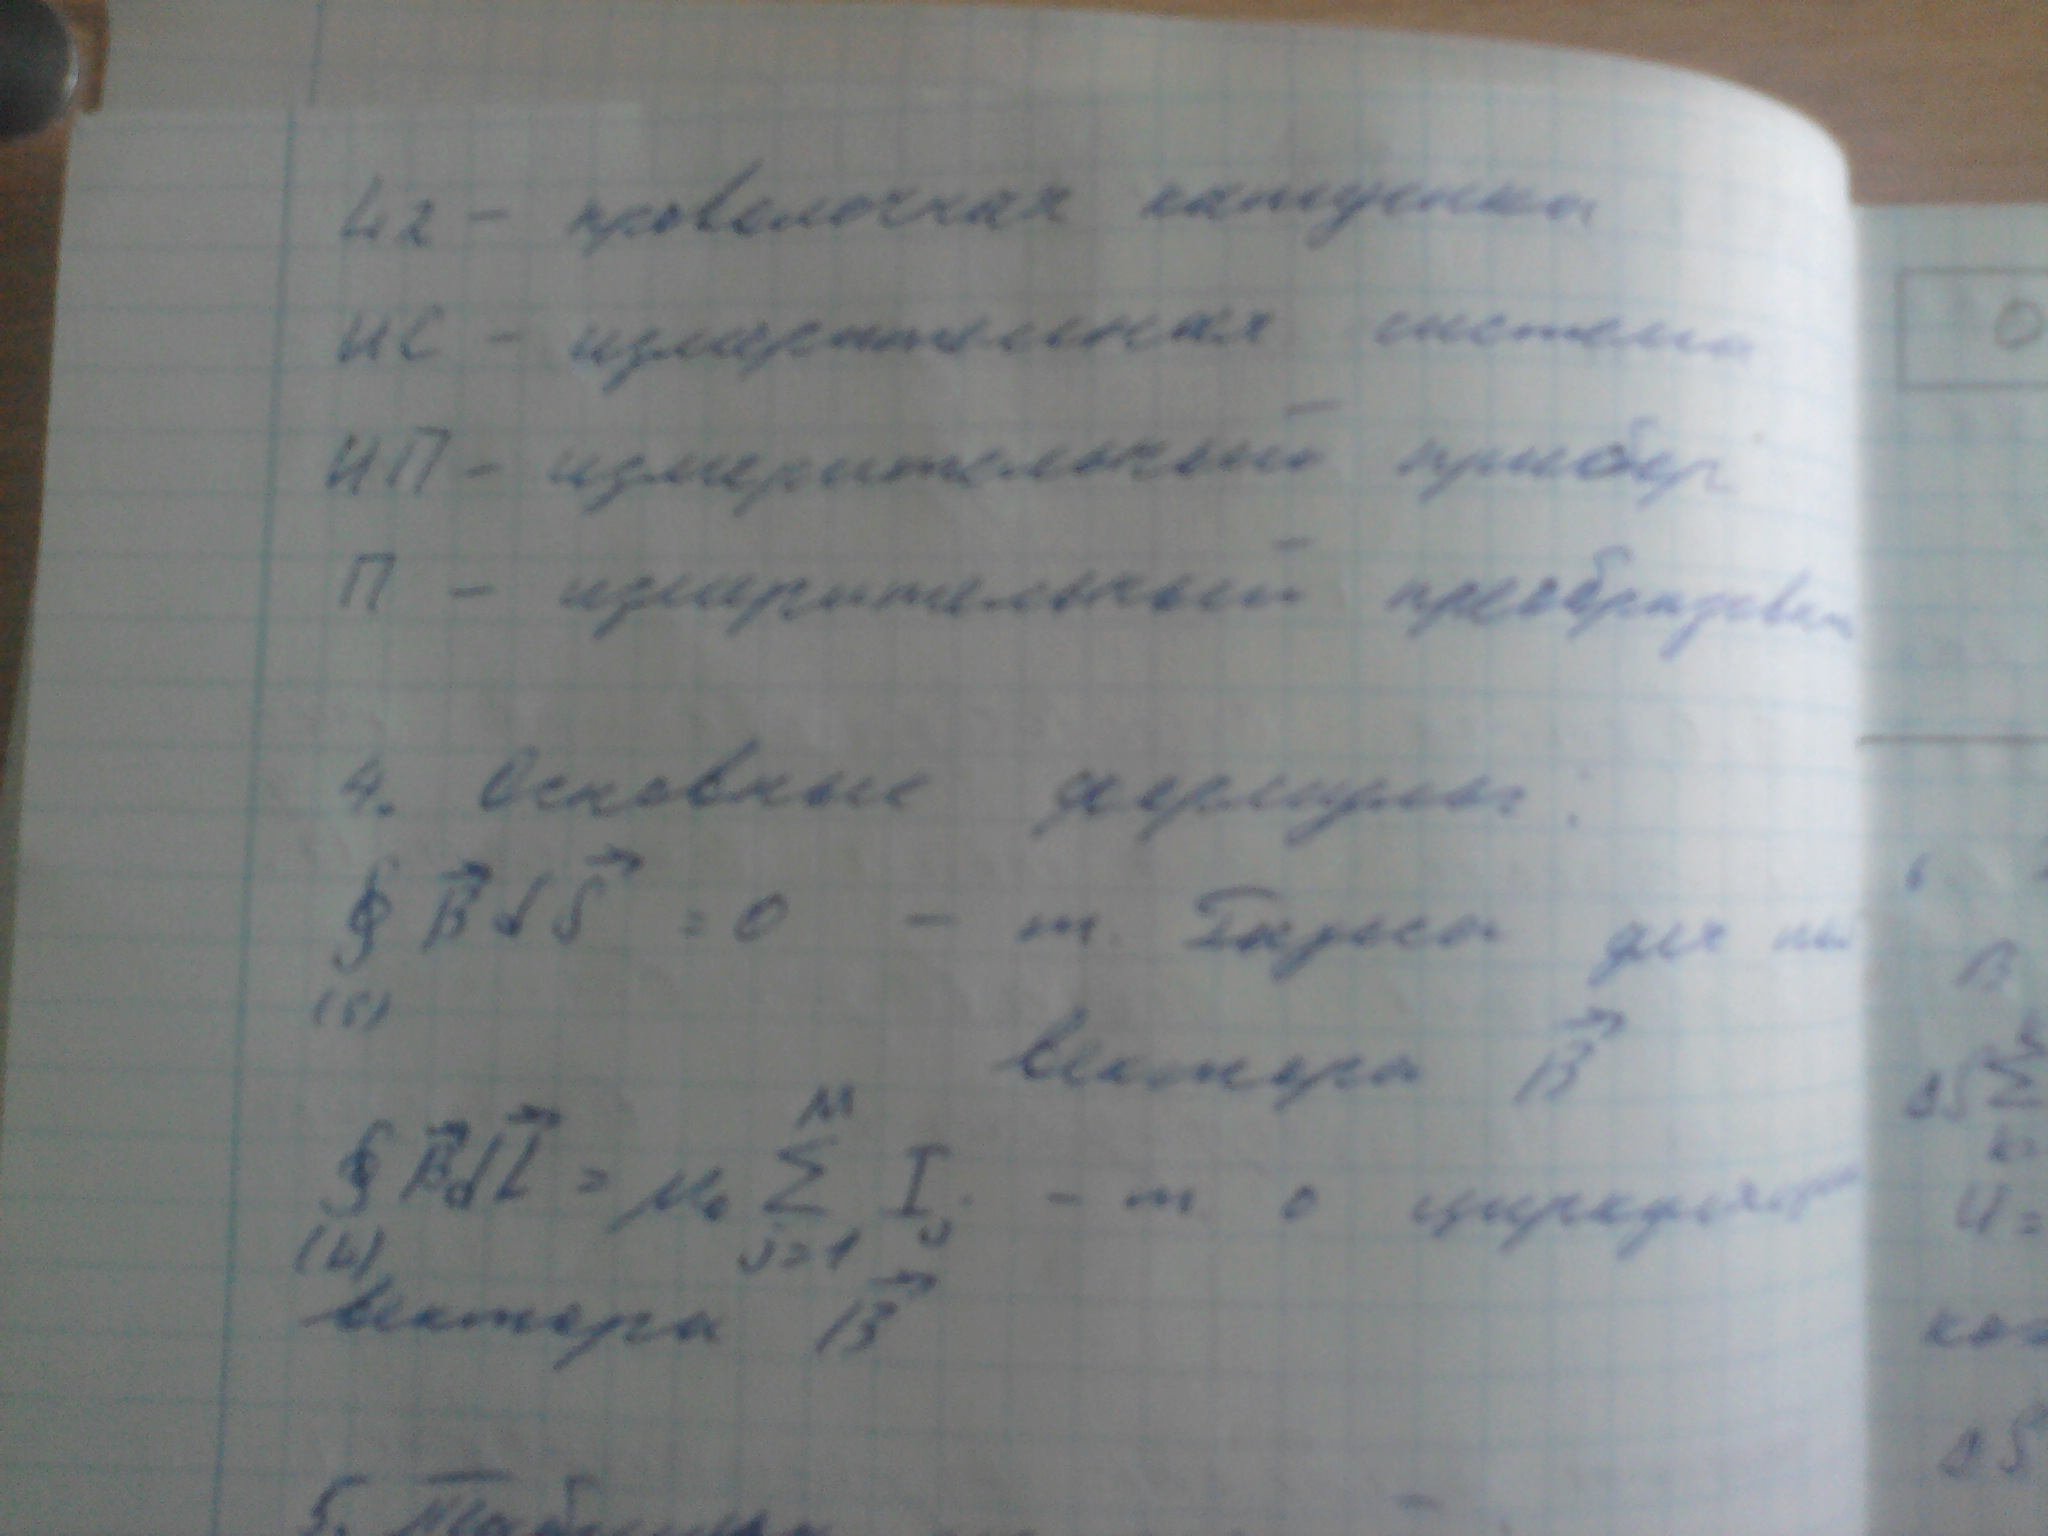 L2 - проволочная катушка
ИС - измерительная система
ИП - измерительный прибор
П - измерительный преобразоват
4. Основные формулы:
∮ B⃗dS⃗ = 0 - т. Гаусса для
(S)
вектора B⃗
M
∮ B⃗dL⃗ = μ₀ Σ Iⱼ - т. о циркуляции
(L) j=1
вектора B⃗
5. Таблицы
0
B
ΔS Σ
k=
U =
ΔS